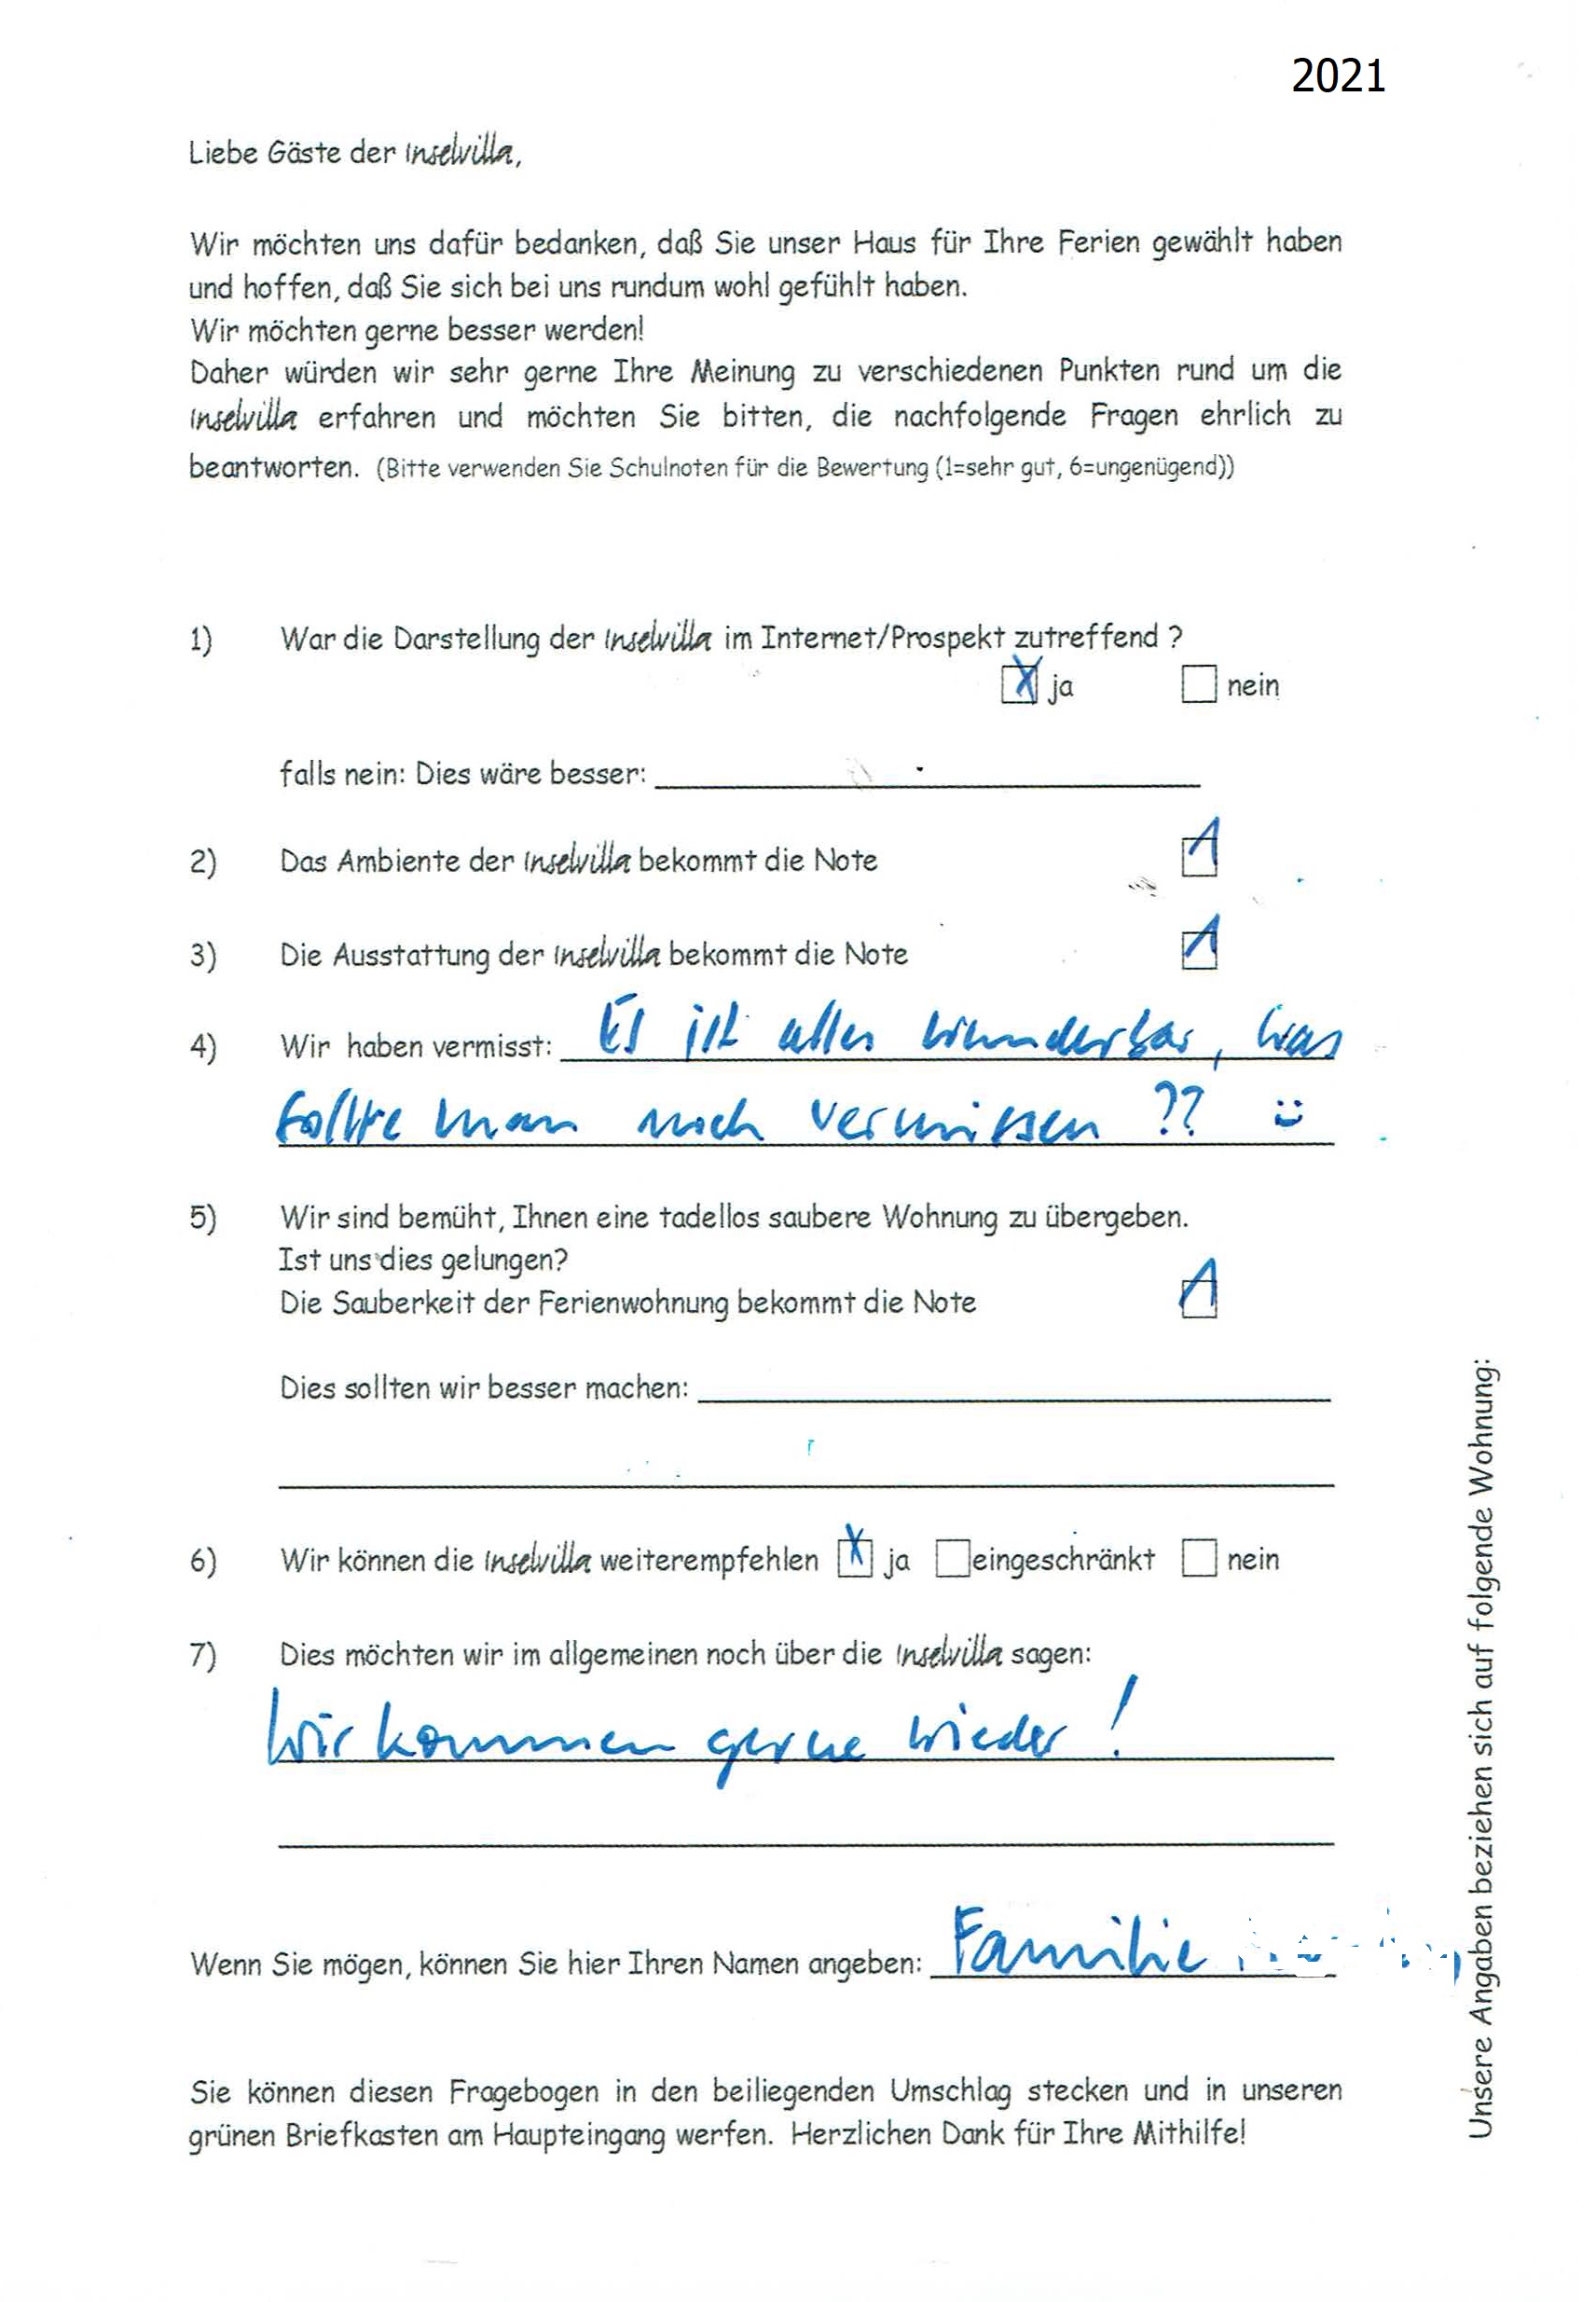 2021
Liebe Gäste der Inselvilla,
Wir möchten uns dafür bedanken, daß Sie unser Haus für Ihre Ferien gewählt haben
und hoffen, daß Sie sich bei uns rundum wohl gefühlt haben.
Wir möchten gerne besser werden!
Daher würden wir sehr gerne Ihre Meinung zu verschiedenen Punkten rund um die
Inselvilla erfahren und möchten Sie bitten, die nachfolgende Fragen ehrlich zu
beantworten. (Bitte verwenden Sie Schulnoten für die Bewertung (1=sehr gut, 6=ungenügend))
1) War die Darstellung der Inselvilla im Internet/Prospekt zutreffend ?
X ja nein
falls nein: Dies wäre besser:
2) Das Ambiente der Inselvilla bekommt die Note 1
3) Die Ausstattung der Inselvilla bekommt die Note 1
4) Wir haben vermisst: Es ist alles wunderbar, was
sollte man noch vermissen ?? :)
5) Wir sind bemüht, Ihnen eine tadellos saubere Wohnung zu übergeben.
Ist uns dies gelungen?
Die Sauberkeit der Ferienwohnung bekommt die Note 1
Dies sollten wir besser machen:
6) Wir können die Inselvilla weiterempfehlen X ja eingeschränkt nein
7) Dies möchten wir im allgemeinen noch über die Inselvilla sagen:
Wir kommen gerne wieder !
Wenn Sie mögen, können Sie hier Ihren Namen angeben: Familie
Sie können diesen Fragebogen in den beiliegenden Umschlag stecken und in unseren
grünen Briefkasten am Haupteingang werfen. Herzlichen Dank für Ihre Mithilfe!
Unsere Angaben beziehen sich auf folgende Wohnung: